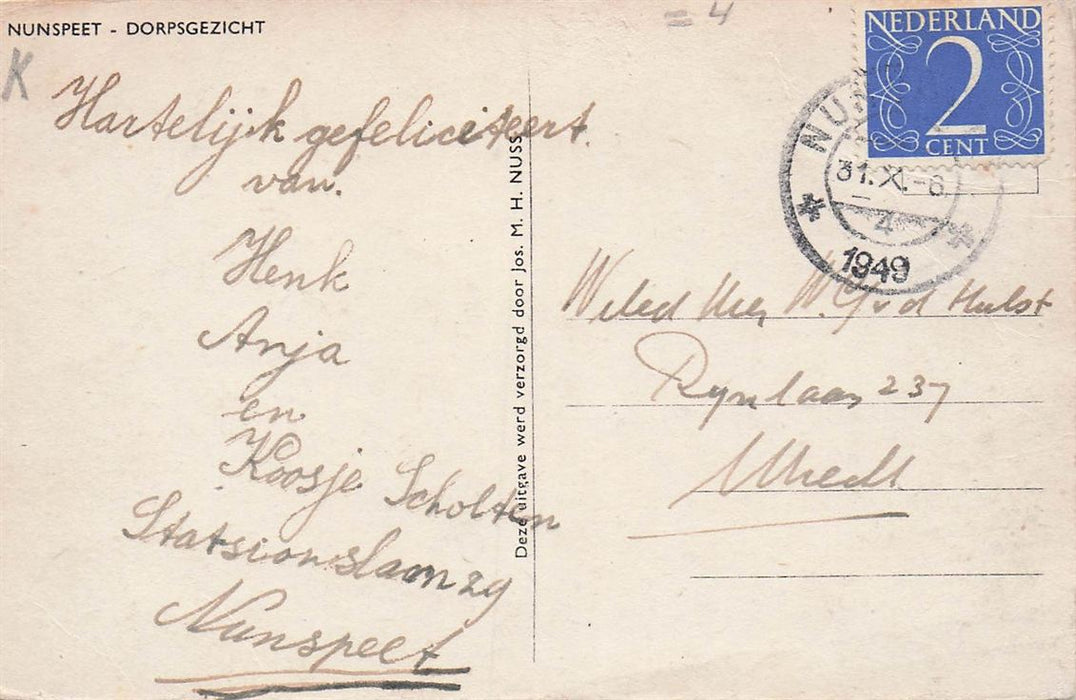 NUNSPEET - DORPSGEZICHT
K
= 4
Hartelijk gefeliciteert.
van.
Henk
Anja
en
Koosje Scholten
Statsionslaan 29
Nunspeet
Deze uitgave werd verzorgd door Jos. M. H. NUSS
NEDERLAND
2
CENT
31.X.-6
4
1949
W. G. v. d. Hulst
Rynlaan 237
Utrecht